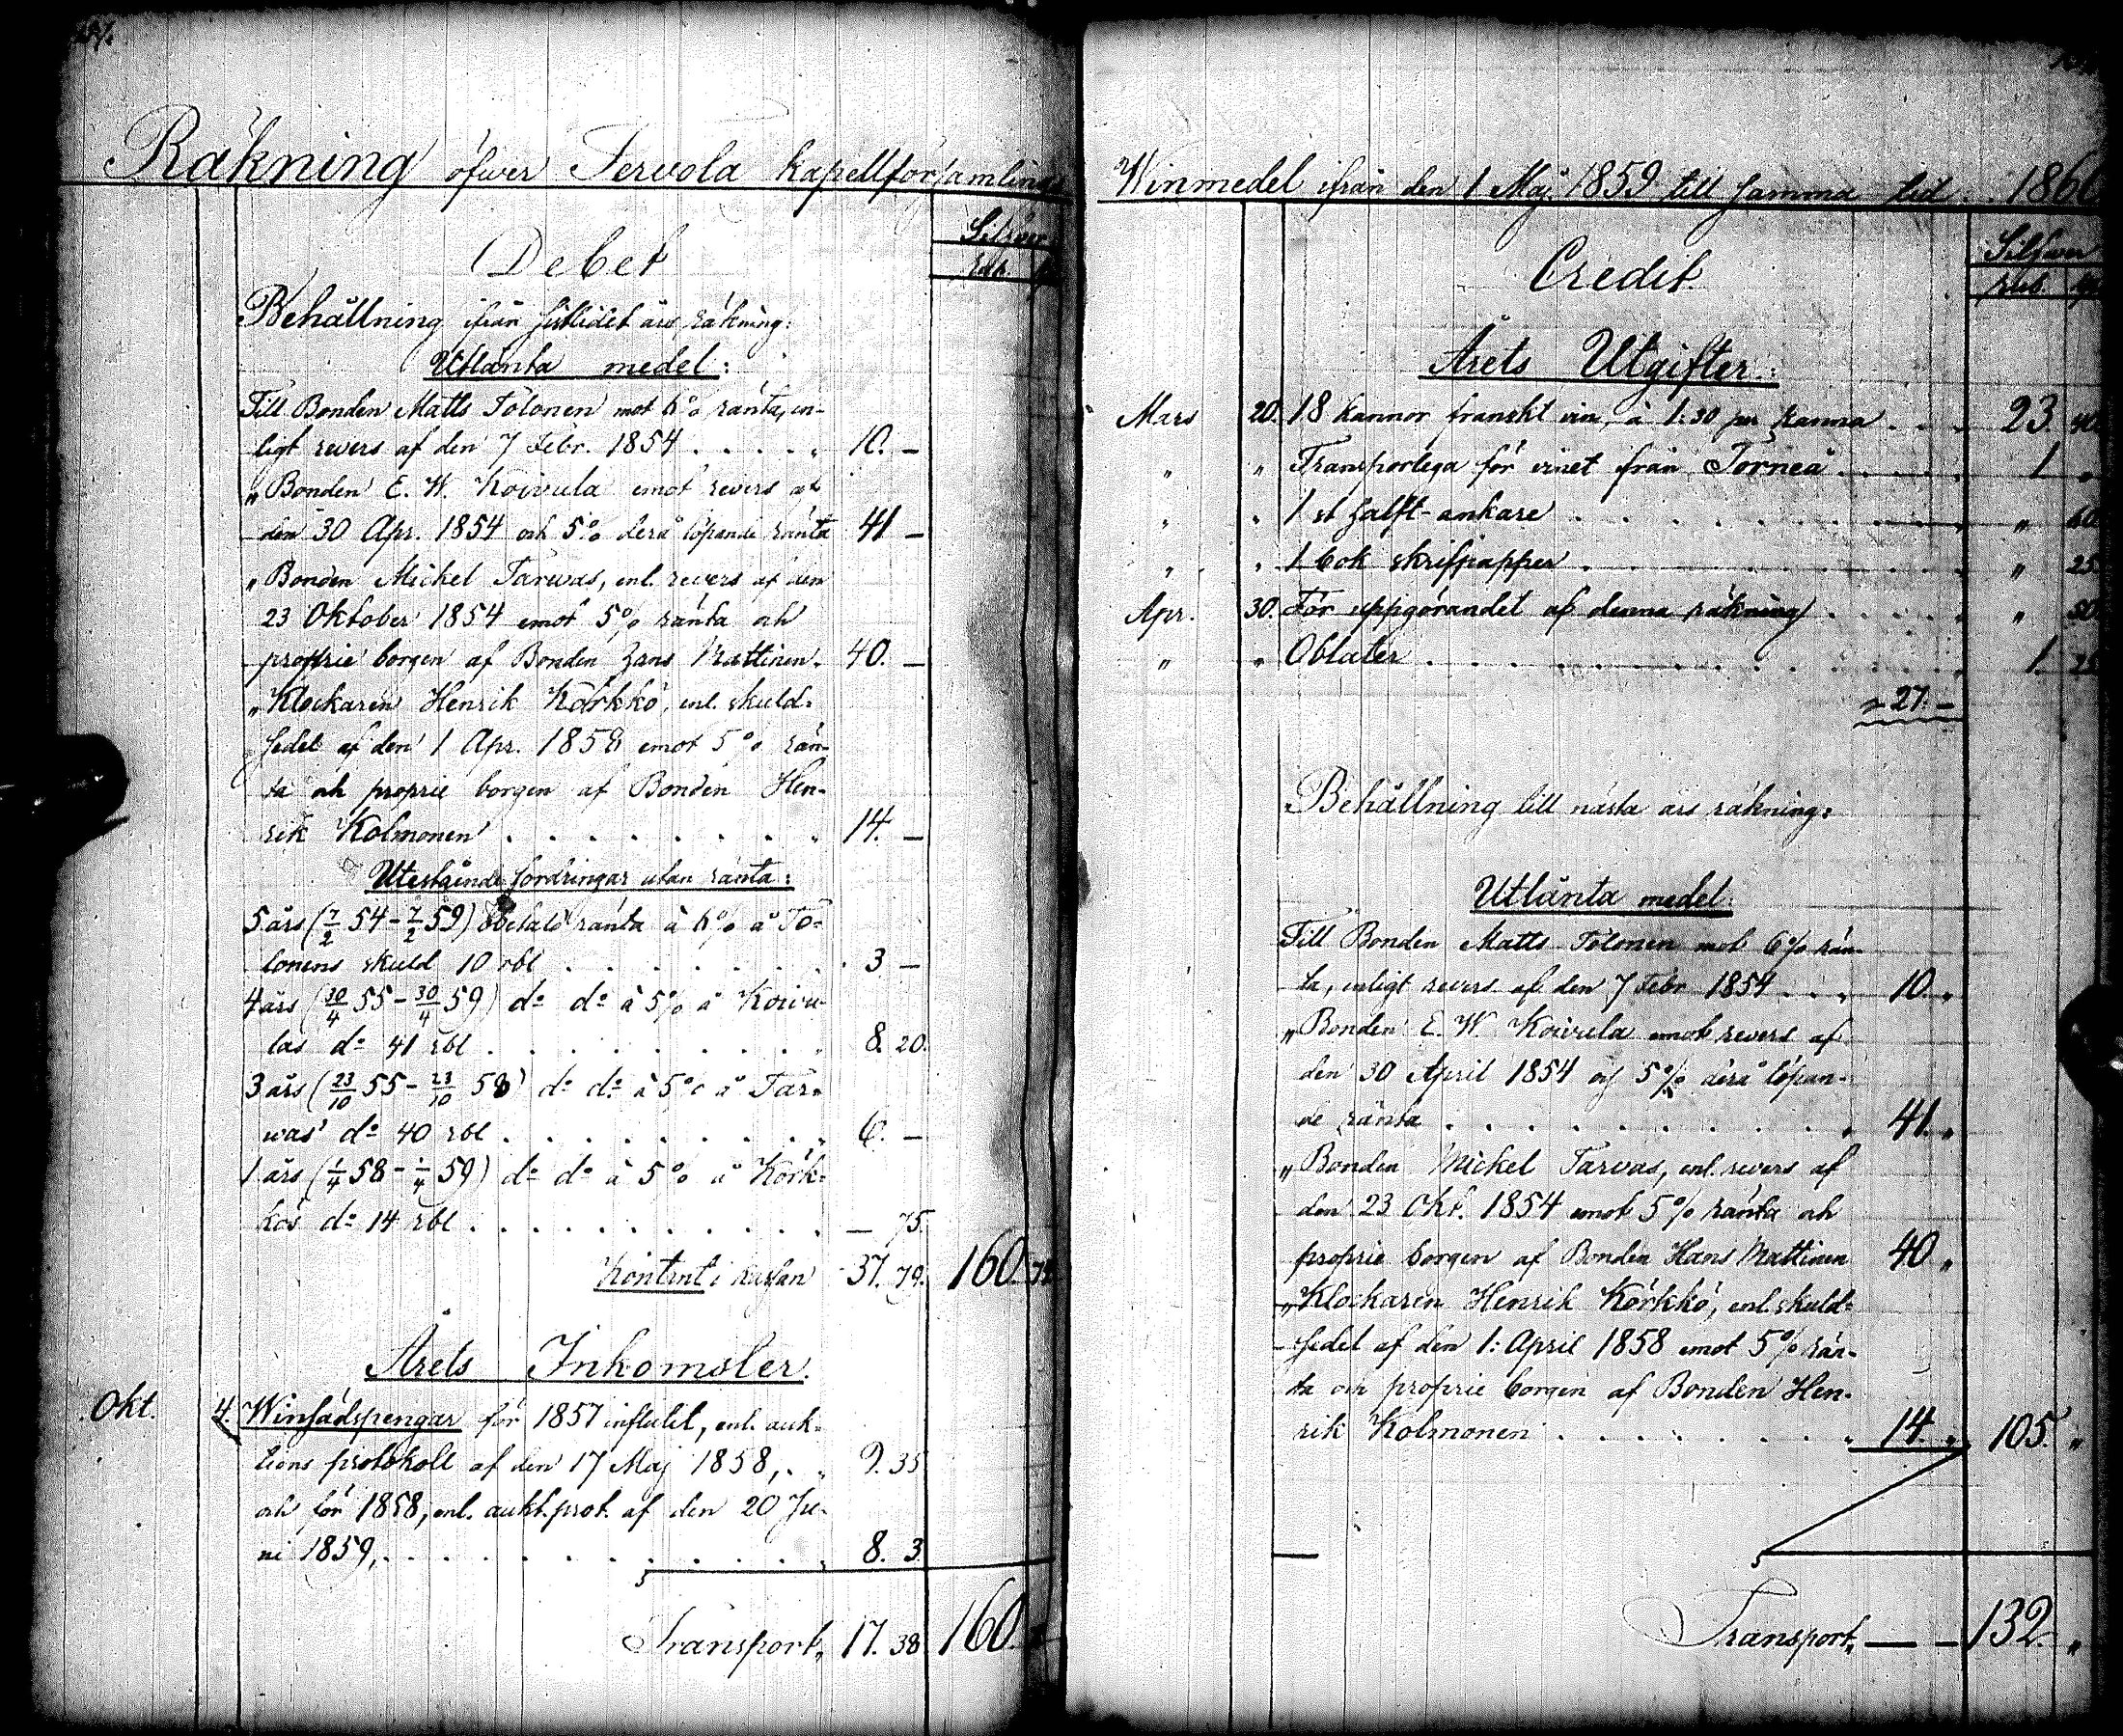 Räkning öfwer Tervola kapellförsamlings
Silfver
Rub. k.
Debet
Behållning ifrån sistlidet års räkning:
Utlånta medel:
Till Bonden Matts Tolonen mot 6% ränta, en-
ligt revers af den 7 Febr. 1854 . . . . . 10. —
„ Bonden E. W. Koivula emot revers af
den 30 Apr. 1854 och 5% derå löpande ränta 41 —
„ Bonden Michel Tarwas, enl. revers af den
23 Oktober 1854 emot 5% ränta och
proprie borgen af Bonden Hans Mattinen. 40. —
„ Klockaren Henrik Körkkö, enl. skuld-
sedel af den 1 Apr. 1858 emot 5% rän-
ta och proprie borgen af Bonden Hen-
rik Kolmonen . . . . . . . . 14. —
Utestående fordringar utan ränta:
5 års (7/2 54 - 7/2 59) obetald ränta à 6% å To-
lonens skuld 10 rbl . . . . . . . 3 —
4 års (30/4 55 - 30/4 59) do do à 5% å Koivu-
las do 41 rbl . . . . . . . . . 8. 20.
3 års (23/10 55 - 23/10 58) do do à 5% å Tar-
was do 40 rbl . . . . . . . . . 6. —
1 års (1/4 58 - 1/4 59) do do à 5% å Körk-
kös do 14 rbl . . . . . . . . . — 75.
Kontant i kassan 37. 79. 160. 74
Årets Inkomster.
Okt. 4. Winsädspengar för 1857 influtit, enl. auk-
tions protokoll af den 17 Maj 1858, . . 9. 35
och för 1858, enl. aukt. prot. af den 20 Ju-
ni 1859, . . . . . . . . . . 8. 3.
Transport, 17. 38 160.
Winmedel ifrån den 1 Maj 1859 till samma tid . . 1860.
Silfver
Rub. k.
Credit
Årets Utgifter:
Mars 20. 18 kannor franskt vin, à 1:30 per kanna . . . 23. 40.
„ „ Transportlega för vinet ifrån Torneå . . . . . 1. „
„ „ 1 st halft-ankare . . . . . . . . . „ 60.
„ „ 1 bok skrifpapper . . . . . . . . . „ 25.
Apr. 30. För uppgörandet af denna räkning . . . . . „ 50.
„ „ Oblater . . . . . . . . . . . 1. 25
27. —
Behållning till nästa års räkning:
Utlånta medel:
Till Bonden Matts Tolonen mot 6% rän-
ta, enligt revers af den 7 Febr 1854 . . . 10. „
„ Bonden E. W. Koivula emot revers af
den 30 April 1854 och 5% derå löpan-
de ränta . . . . . . . . . . 41. „
„ Bonden Mickel Tarvas, enl. revers af
den 23 Okt. 1854 emot 5% ränta och
proprie borgen af Bonden Hans Mattinen 40 „
„ Klockaren Henrik Körkkö, enl. skuld-
sedel af den 1: April 1858 emot 5% rän-
ta och proprie borgen af Bonden Hen-
rik Kolmonen . . . . . . . . 14. „ 105. „
Transport, — — 132. „